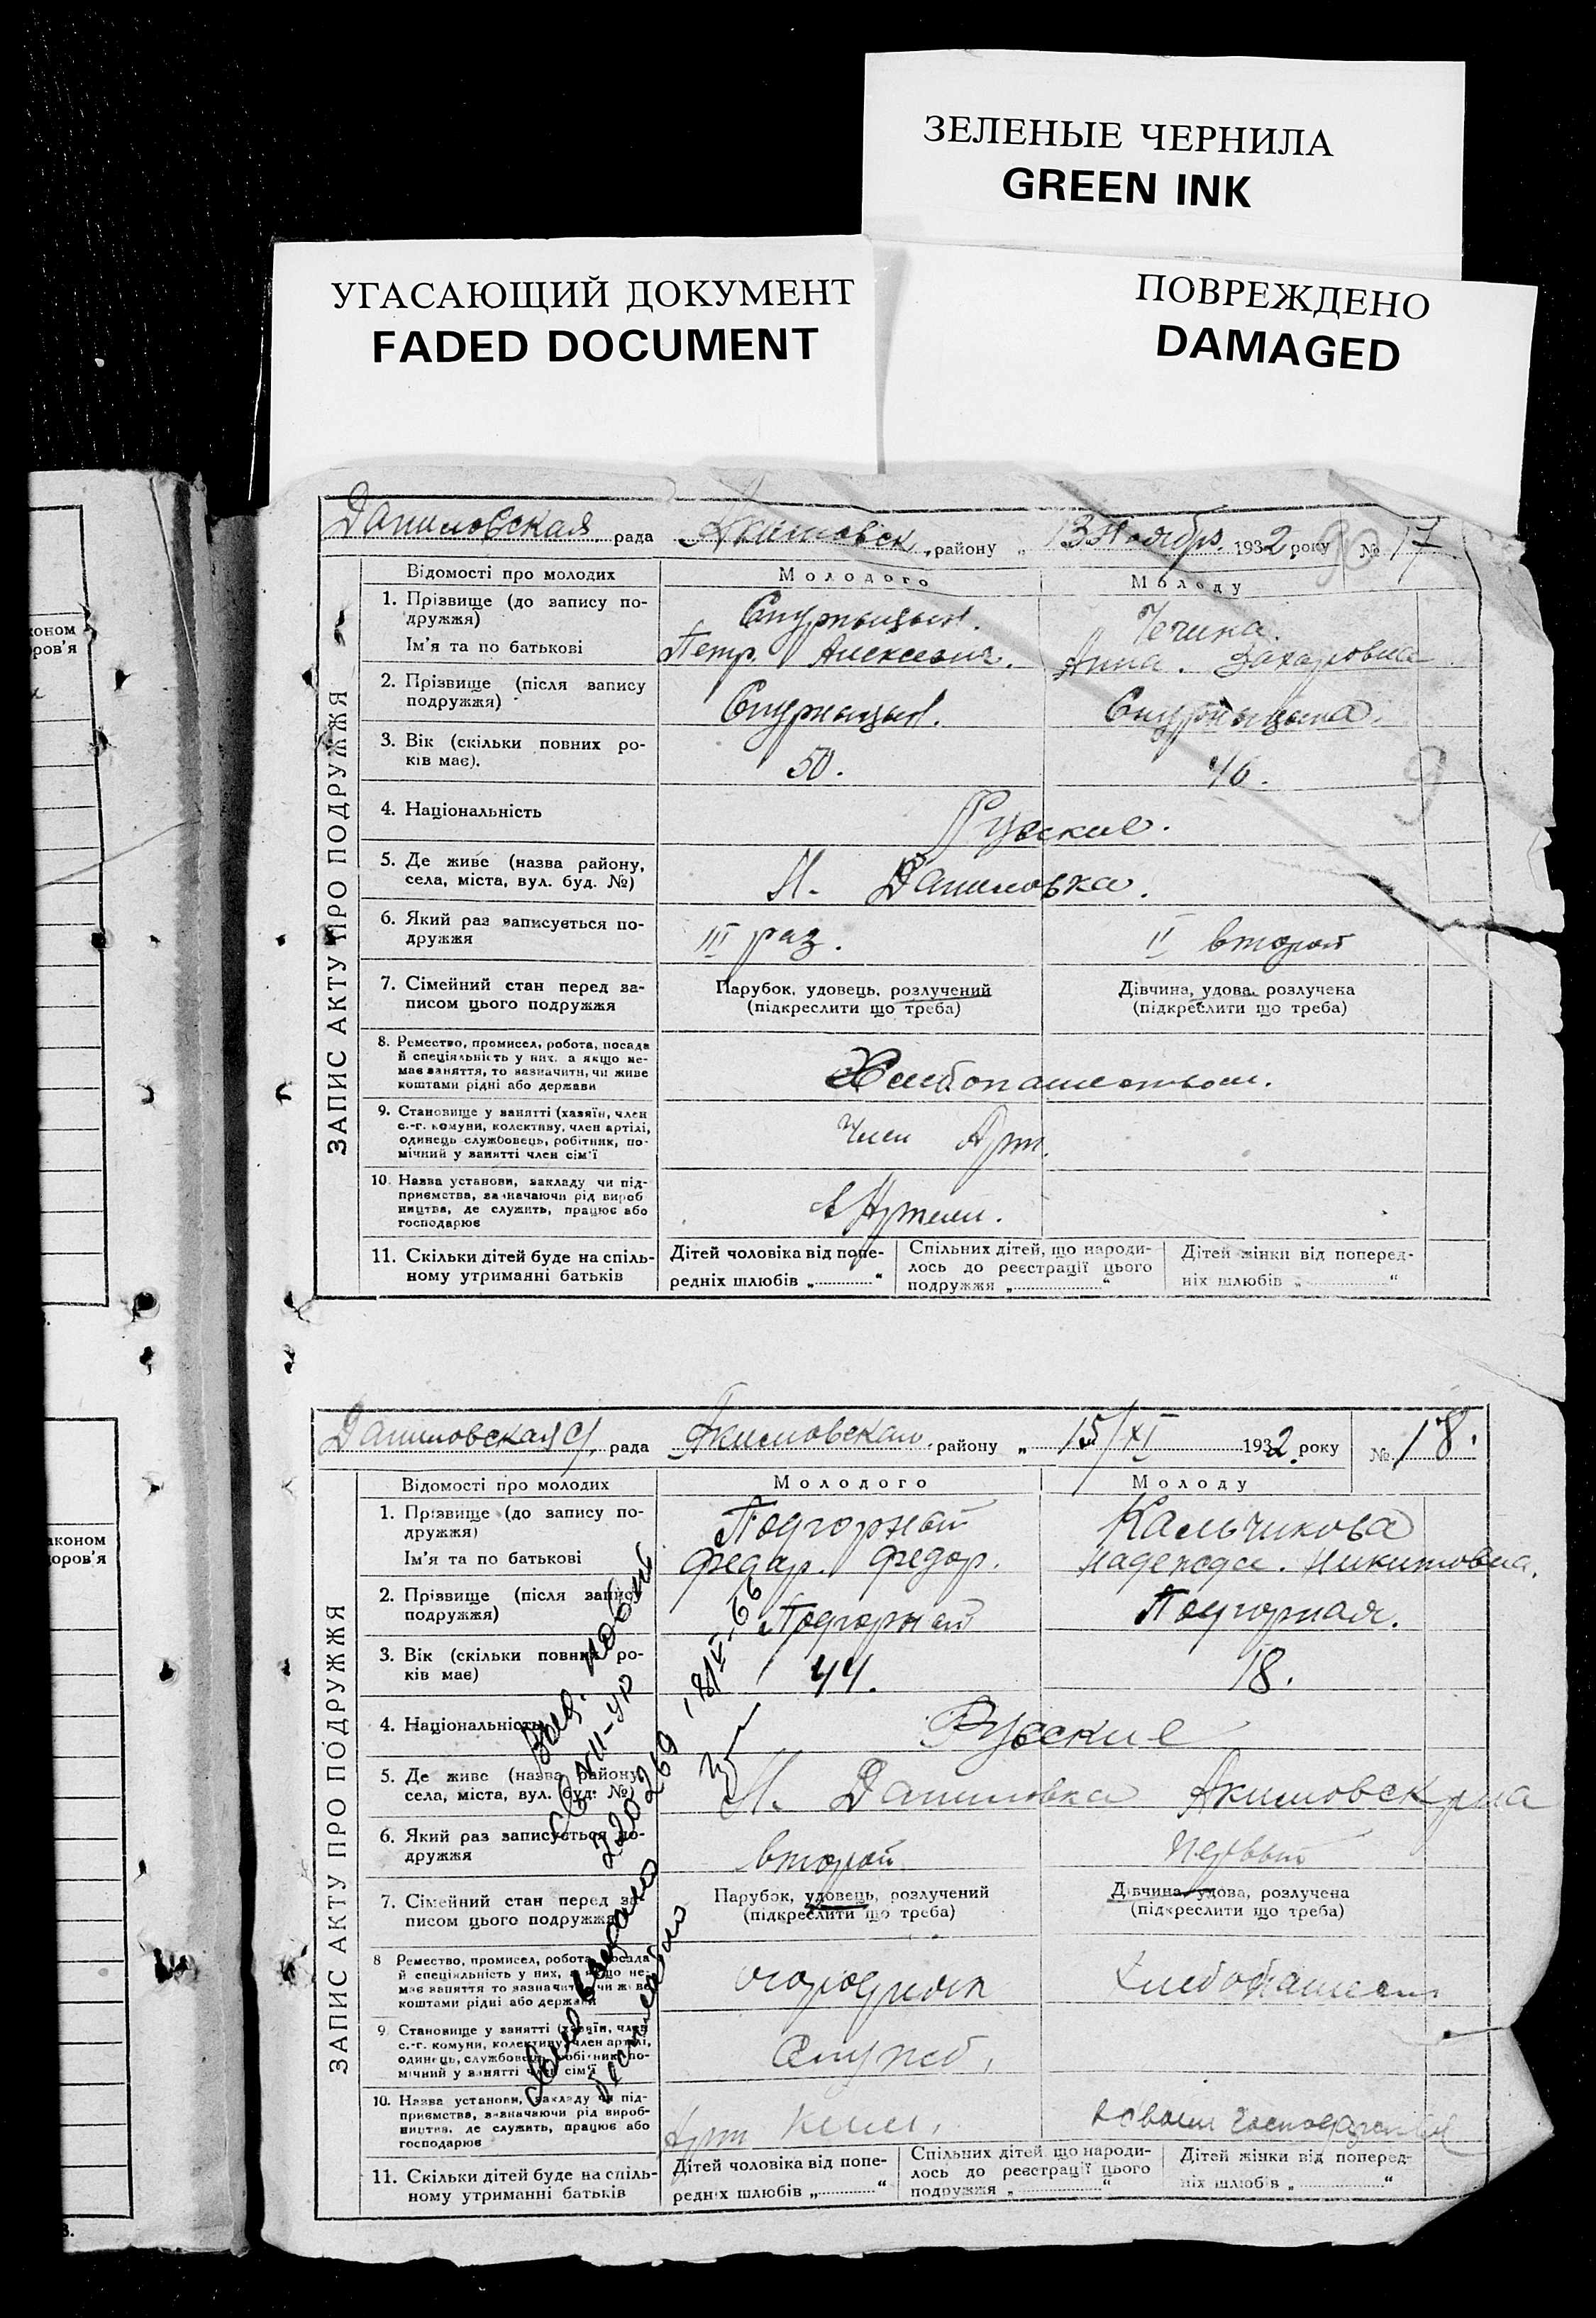 ЗЕЛЕНЫЕ ЧЕРНИЛА
GREEN INK
УГАСАЮЩИЙ ДОКУМЕНТ
FADED DOCUMENT
ПОВРЕЖДЕНО
DAMAGED
Даниловская рада Акимовск району „13 Ноябр. 1932 року № 17
ЗАПИС АКТУ ПРО ПОДРУЖЖЯ
Відомості про молодих
Молодого
Молоду
1. Прізвище (до запису по-
дружжя)
Ім'я та по батькові
Петр. Алексеевич.
Чечина.
Анна. Захаровна
2. Прізвище (після запису
подружжя)
3. Вік (скільки повних ро-
ків має).
50.
46.
4. Національність
Русские.
5. Де живе (назва району,
села, міста, вул. буд. №)
Н. Даниловка.
6. Який раз записується по-
дружжя
III раз.
II второй
7. Сімейний стан перед за-
писом цього подружжя
Парубок, удовець, розлучений
(підкреслити що треба)
Дівчина, удова, розлучена
(підкреслити що треба)
8. Ремество, промисел, робота, посада
й спеціяльність у них, а якщо не-
має заняття, то зазначити, чи живе
коштами рідні або держави
Хлебопашеством.
9. Становище у занятті (хазяїн, член
с.-г. комуни, колективу, член артілі,
одинець службовець, робітник, по-
мічний у занятті член сім'ї
Член Арт.
10. Назва установи, закладу чи під-
приємства, зазначаючи рід вироб
ництва, де служить, працює або
господарює
в Артели.
11. Скільки дітей буде на спіль-
ному утриманні батьків
Дітей чоловіка від попе-
редніх шлюбів „ “
Спільних дітей, що народи-
лось до реєстрації цього
подружжя „ “
Дітей жінки від поперед-
ніх шлюбів „ “
Даниловская с/ рада Акимовскаго району „15/XI 1932 року № 18.
ЗАПИС АКТУ ПРО ПОДРУЖЖЯ
Відомості про молодих
Молодого
Молоду
1. Прізвище (до запису по-
дружжя)
Ім'я та по батькові
Подгорный
Федор. Федор.
Кальчикова
Надежда. Никитовна.
2. Прізвище (після запису
подружжя)
Подгорный
Подгорная.
3. Вік (скільки повних ро-
ків має)
44.
18.
4. Національність
Русские
5. Де живе (назва району,
села, міста, вул. буд. №)
Н. Даниловка Акимовск р-на
6. Який раз записується по-
дружжя
второй
первый
7. Сімейний стан перед за-
писом цього подружжя
Парубок, удовець, розлучений
(підкреслити що треба)
Дівчина, удова, розлучена
(підкреслити що треба)
8 Ремество, промисел, робота, посада
й спеціяльність у них, а якщо не-
має заняття то зазначити, чи живе
коштами рідні або держави
огородник
9. Становище у занятті (хазяїн, член
с.-г. комуни, колективу, член артілі,
одинець, службовець, робітник, по-
мічний у занятті член сім'ї
Служб.
10. Назва установи, закладу чи під-
приємства, зазначаючи рід вироб-
ництва, де служить, працює або
господарює
Арт
11. Скільки дітей буде на спіль-
ному утриманні батьків
Дітей чоловіка від попе-
редніх шлюбів „ “
Спільних дітей, що народи-
лось до реєстрації цього
подружжя „ “
Дітей жінки від поперед-
ніх шлюбів „ “